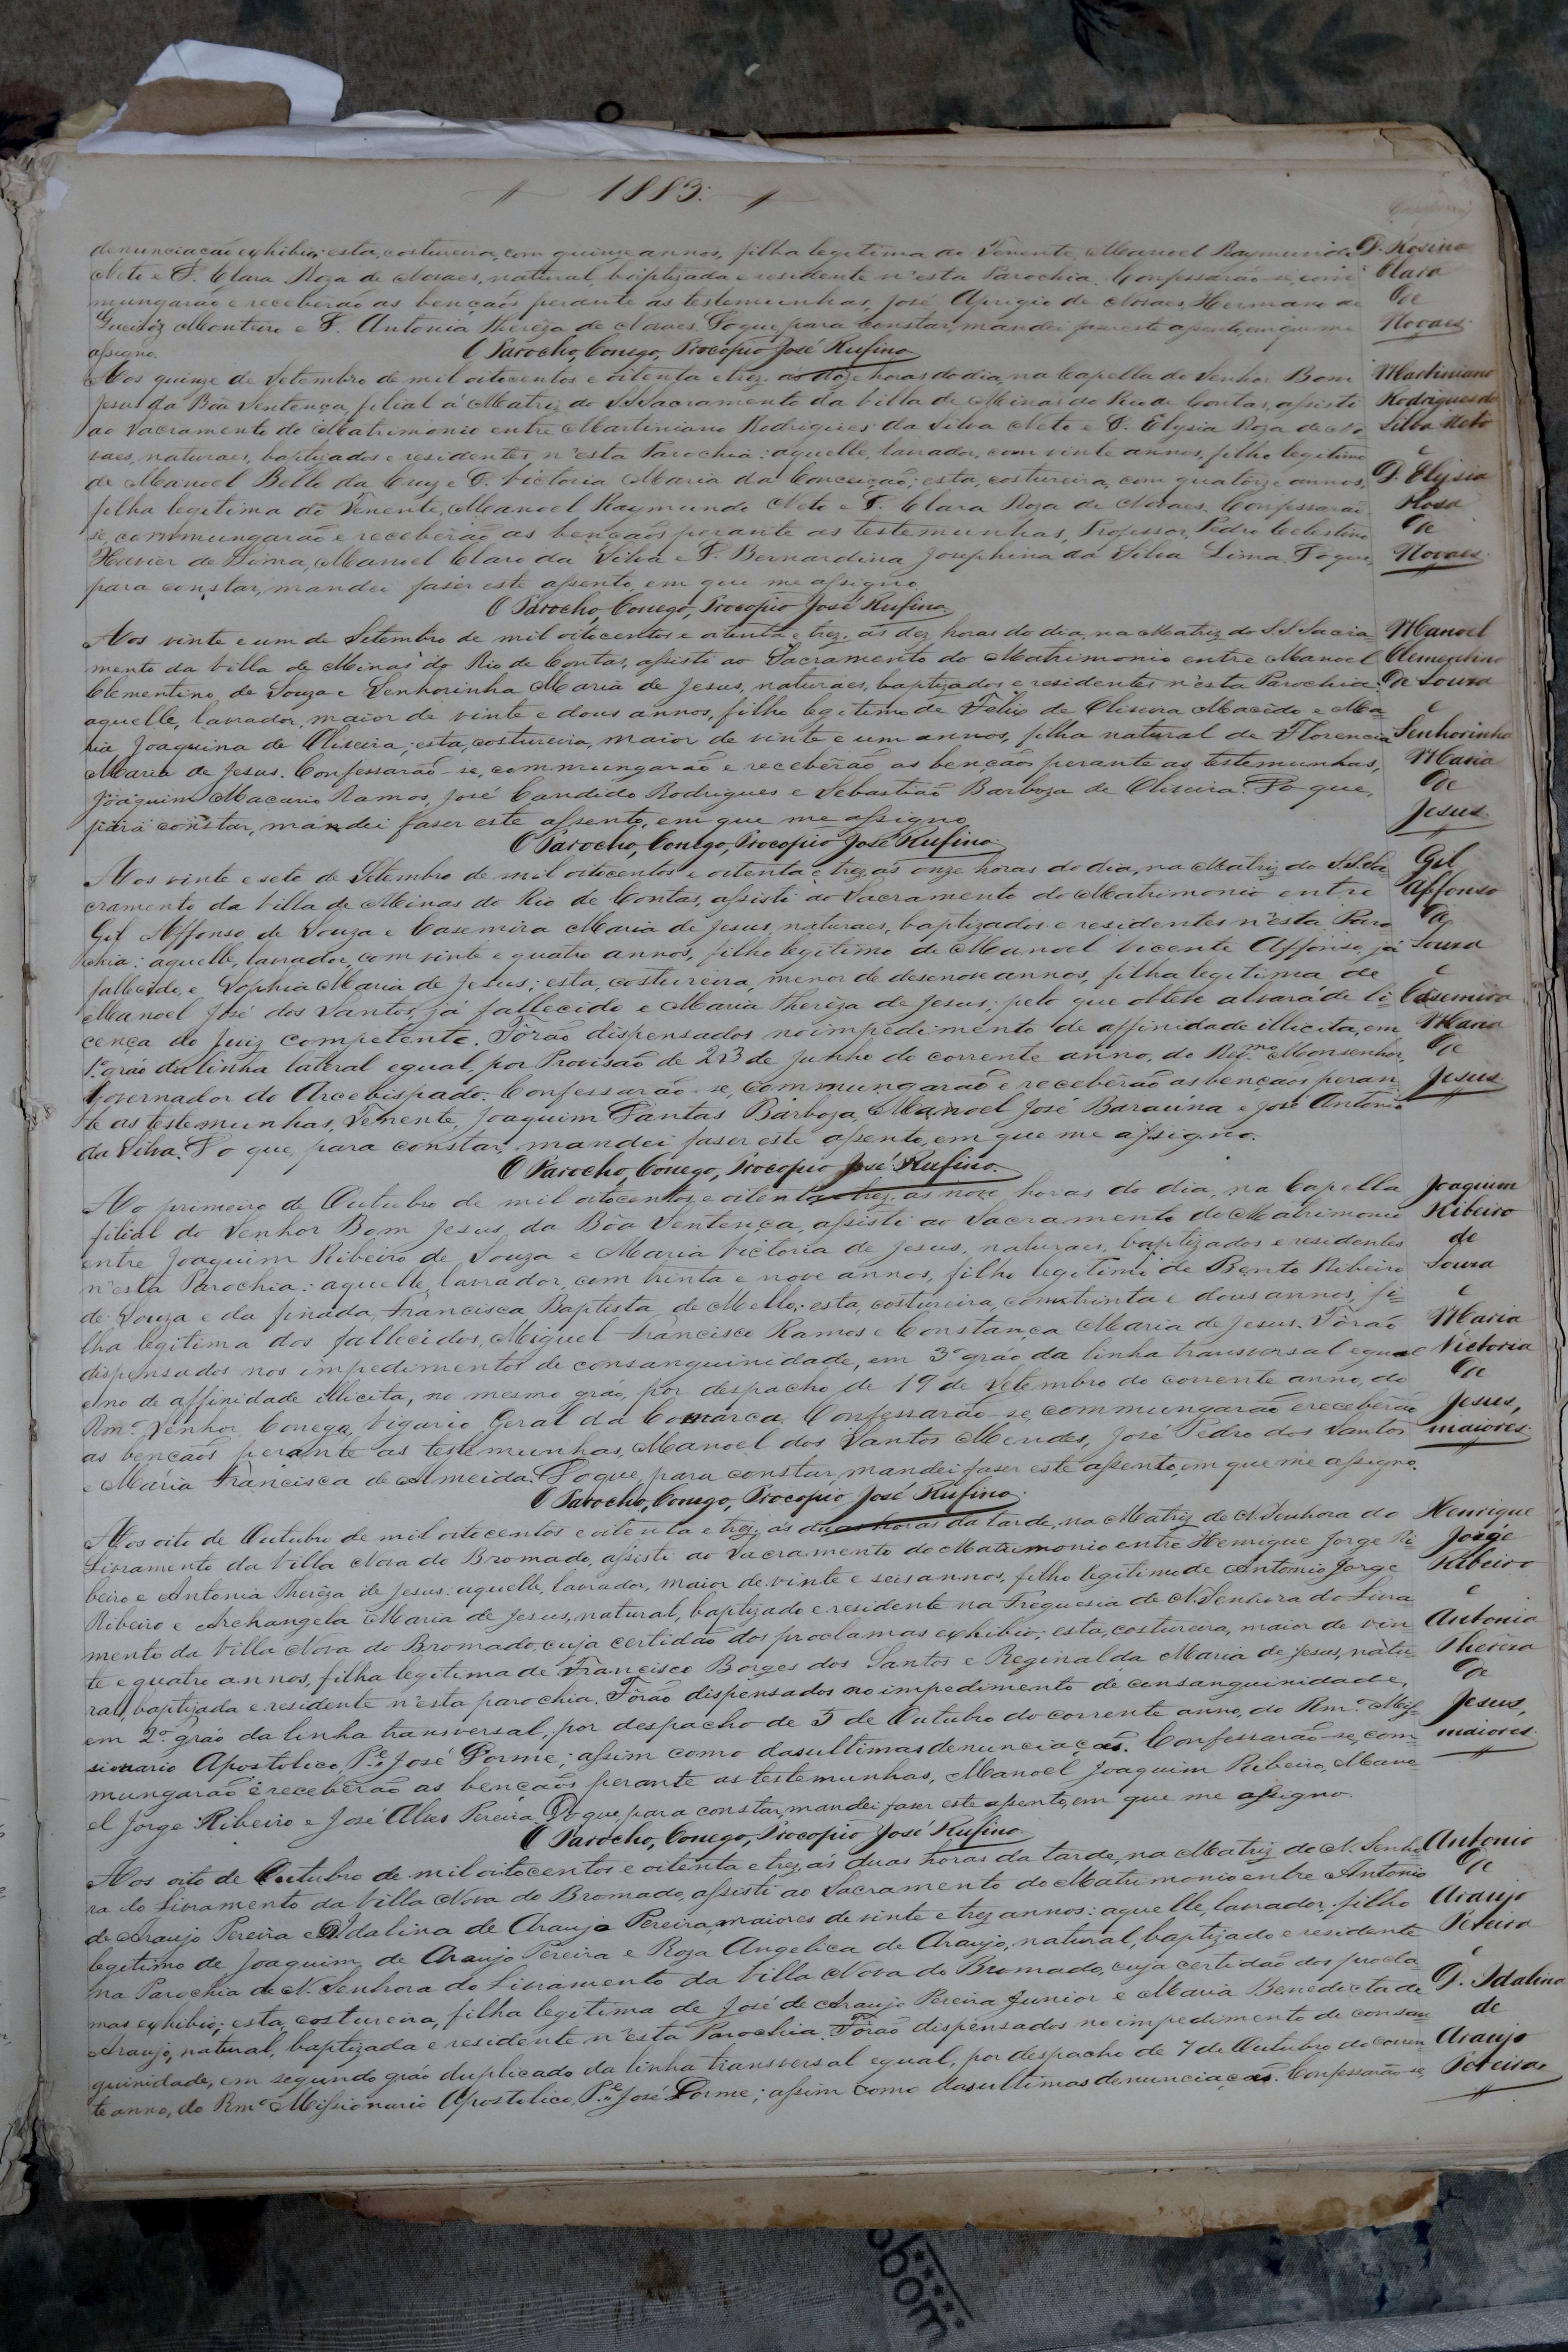 1883.
denunciação exhibio; esta, costureira, com quinze annos, filha legitima do Tenente, Manoel Raymundo
Neto e D. Clara Roza de Novaes, natural, baptizada e residente n'esta Parochia. Confessarão-se, com-
mungarão e receberão as bençãos perante as testemunhas, José Aprigio de Novaes, Hermano de
Queiróz Monteiro e D. Antonia Thereza de Novaes. Do que, para constar, mandei faser este assento, em que me
assigno.
O Parocho, Conego, Procopio José Rufino
D. Rosina
Clara
de
Novaes.
Aos quinze de Setembro de mil oitocentos e oitenta e trez, ás doze horas do dia, na Capella do Senhor Bom
Jesus da Bôa Sentença, filial á Matriz do S. Sacramento da Villa de Minas do Rio de Contas, assisti
ao Sacramento do Matrimonio entre Martiniano Rodrigues da Silva Neto e D. Elysia Roza de No-
vaes, naturaes, baptizados e residentes n'esta Parochia: aquelle, lavrador, com vinte annos, filho legitimo
de Manoel Bello da Cruz e D. Victoria Maria da Conceição; esta, costureira, com quatorze annos,
filha legitima do Tenente, Manoel Raymundo Neto e D. Clara Roza de Novaes. Confessarão-
se, commungarão e receberão as bençãos perante as testemunhas, Professor, Pedro Celestino
Xavier de Lima, Manoel Claro da Silva e D. Bernardina Josephina da Silva Lima. Do que,
para constar, mandei faser este assento, em que me assigno.
O Parocho, Conego, Procopio José Rufino.
Martiniano
Rodrigues da
Silva Neto
e
D. Elysia
Rosa
de
Novaes.
Aos vinte e um de Setembro de mil oitocentos e oitenta e trez, ás dez horas do dia, na Matriz do S.S. Sacra-
mento da Villa de Minas do Rio de Contas, assisti ao Sacramento do Matrimonio entre Manoel
Clementino de Souza e Senhorinha Maria de Jesus, naturaes, baptizados e residentes n'esta Parochia:
aquelle, lavrador, maior de vinte e dous annos, filho legitimo de Felix de Oliveira Macêdo e Ma-
ria Joaquina de Oliveira; esta, costureira, maior de vinte e um annos, filha natural de Florencia
Maria de Jesus. Confessarão-se, commungarão e receberão as bençãos perante as testemunhas,
Joaquim Macario Ramos, José Candido Rodrigues e Sebastião Barboza de Oliveira. Do que,
para constar, mandei faser este assento, em que me assigno
O Parocho, Conego, Procopio José Rufino.
Manoel
Clementino
de Souza
e
Senhorinha
Maria
de
Jesus.
Aos vinte e sete de Setembro de mil oitocentos e oitenta e trez, ás onze horas do dia, na Matriz do S.S. Sa-
cramento da Villa de Minas do Rio de Contas, assisti ao Sacramento do Matrimonio entre
Gil Affonso de Souza e Casemira Maria de Jesus, naturaes, baptizados e residentes n'esta Paro-
chia: aquelle, lavrador, com vinte e quatro annos, filho legitimo de Manoel Vicente Affonso, já
fallecido, e Sophia Maria de Jesus; esta, costureira, menor de desenove annos, filha legitima de
Manoel José dos Santos, já fallecido e Maria Thereza de Jesus; pelo que obteve alvará de li-
cença do Juiz competente. Fôrão dispensados no impedimento de affinidade illicita, em
1.º gráo da linha lateral egual, por Provisão de 23 de Junho do corrente anno, do Rev.mo Monsenhor,
Governador do Arcebispado. Confessarão-se, commungarão e receberão as bençãos peran-
te as testemunhas, Tenente, Joaquim Dantas Barboza, Manoel José Baraúna e José Antonio
da Silva. Do que, para constar, mandei faser este assento, em que me assigno.
O Parocho, Conego, Procopio José Rufino.
Gil
Affonso
de
Souza
e
Casemira
Maria
de
Jesus
Ao primeiro de Outubro de mil oitocentos e oitenta e trez, ás nove horas do dia, na Capella
filial do Senhor Bom Jesus da Bôa Sentença, assisti ao Sacramento do Matrimonio
entre Joaquim Ribeiro de Souza e Maria Victoria de Jesus, naturaes, baptizados e residentes
n'esta Parochia: aquelle, lavrador, com trinta e nove annos, filho legitimo de Bento Ribeiro
de Souza e da finada, Francisca Baptista de Mello; esta, costureira, com trinta e dous annos, fi-
lha legitima dos fallecidos, Miguel Francisco Ramos e Constança Maria de Jesus. Fôrão
dispensados nos impedimentos de consanguinidade, em 3.º gráo da linha transversal egual
e no de affinidade illicita, no mesmo gráo, por despacho de 19 de Setembro do corrente anno, do
Rm.º Senhor, Conego, Vigario Geral da Comarca. Confessarão-se, commungarão e receberão
as bençãos perante as testemunhas, Manoel dos Santos Mendes, José Pedro dos Santos
e Maria Francisca de Almeida. Do que, para constar, mandei faser este assento, em que me assigno.
O Parocho, Conego, Procopio José Rufino.
Joaquim
Ribeiro
de
Souza
e
Maria
Victoria
de
Jesus,
maiores.
Aos oito de Outubro de mil oitocentos e oitenta e trez, ás duas horas da tarde, na Matriz de N. Senhora do
Livramento da Villa Nova do Bromado, assisti ao Sacramento do Matrimonio entre Henrique Jorge Ri-
beiro e Antonia Thereza de Jesus: aquelle, lavrador, maior de vinte e seis annos, filho legitimo de Antonio Jorge
Ribeiro e Archangela Maria de Jesus, natural, baptizado e residente na Freguesia de N. Senhora do Livra-
mento da Villa Nova do Bromado, cuja certidão dos proclamas exhibio; esta, costureira, maior de vin-
te e quatro annos, filha legitima de Francisco Borges dos Santos e Reginalda Maria de Jesus, natu-
ral, baptizada e residente n'esta parochia. Fôrão dispensados no impedimento de consanguinidade,
em 2.º gráo da linha transversal, por despacho de 5 de Outubro do corrente anno, do Rm.º Mis-
sionario Apostolico, P.e José Dorme; assim como das ultimas denunciações. Confessarão-se, com-
mungarão e receberão as bençãos perante as testemunhas, Manoel Joaquim Ribeiro, Mano-
el Jorge Ribeiro e José Alves Pereira. Do que, para constar, mandei faser este assento, em que me assigno.
O Parocho, Conego, Procopio José Rufino
Henrique
Jorge
Ribeiro
e
Antonia
Thereza
de
Jesus,
maiores.
Aos oito de Outubro de mil oitocentos e oitenta e trez, ás duas horas da tarde, na Matriz de N. Senho-
ra do Livramento da Villa Nova do Bromado, assisti ao Sacramento do Matrimonio entre Antonio
de Araujo Pereira e D. Idalina de Araujo Pereira, maiores de vinte e trez annos: aquelle, lavrador, filho
legitimo de Joaquim de Araujo Pereira e Roza Angelica de Araujo, natural, baptizado e residente
na Parochia de N. Senhora do Livramento da Villa Nova do Bromado, cuja certidão dos procla-
mas exhibio; esta, costureira, filha legitima de José de Araujo Pereira Junior e Maria Benedicta de
Araujo, natural, baptizada e residente n'esta Parochia. Fôrão dispensados no impedimento de consan-
guinidade, em segundo gráo duplicado da linha transversal egual, por despacho de 7 de Outubro do corren-
te anno, do Rm.º Missionario Apostolico, P.e José Dorme; assim como das ultimas denunciações. Confessarão-se,
Antonio
de
Araujo
Pereira
e
D. Idalina
de
Araujo
Pereira